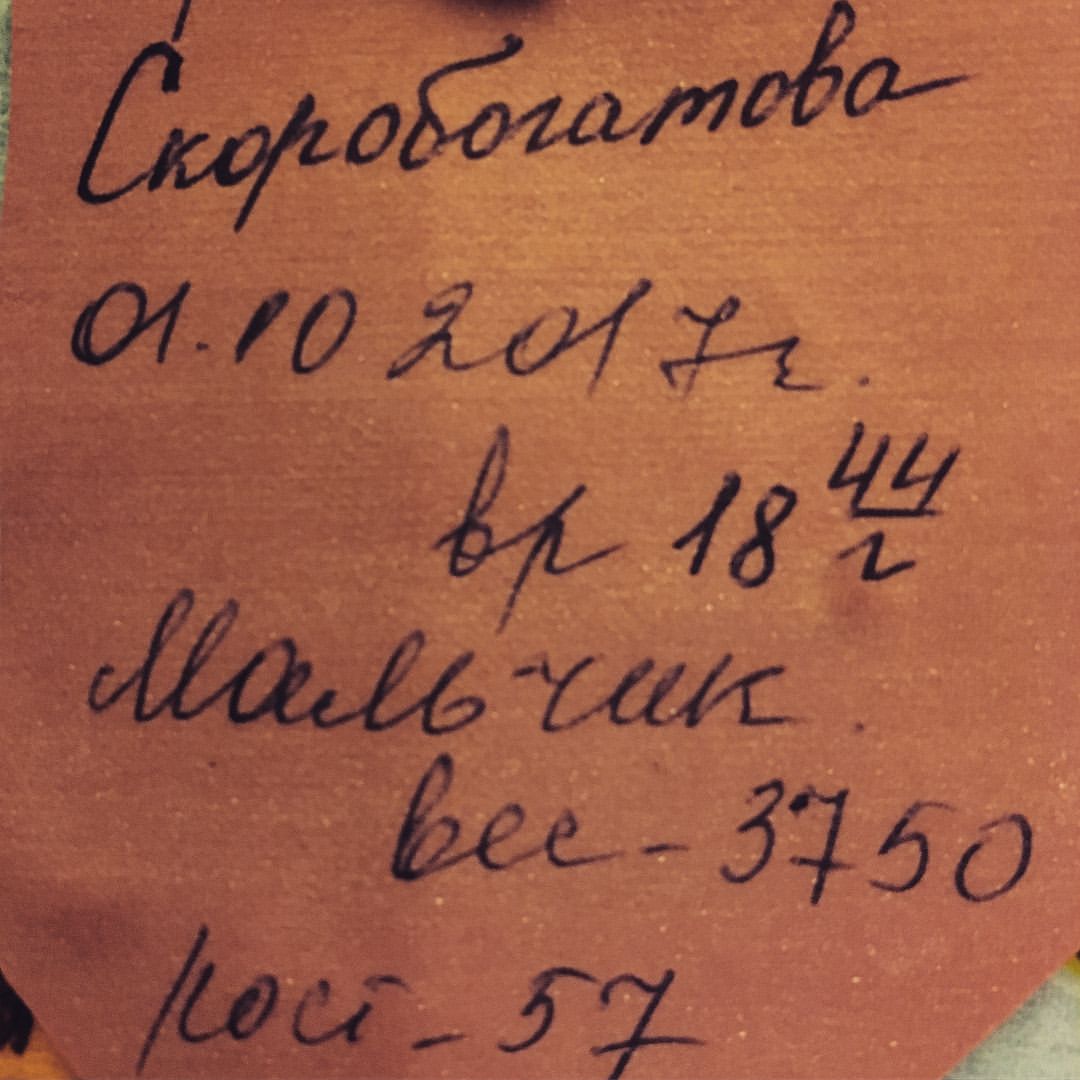 Скоробогатова
01.10 2017г.
вр 18 44/г
Мальчик.
вес - 3750
рост - 57